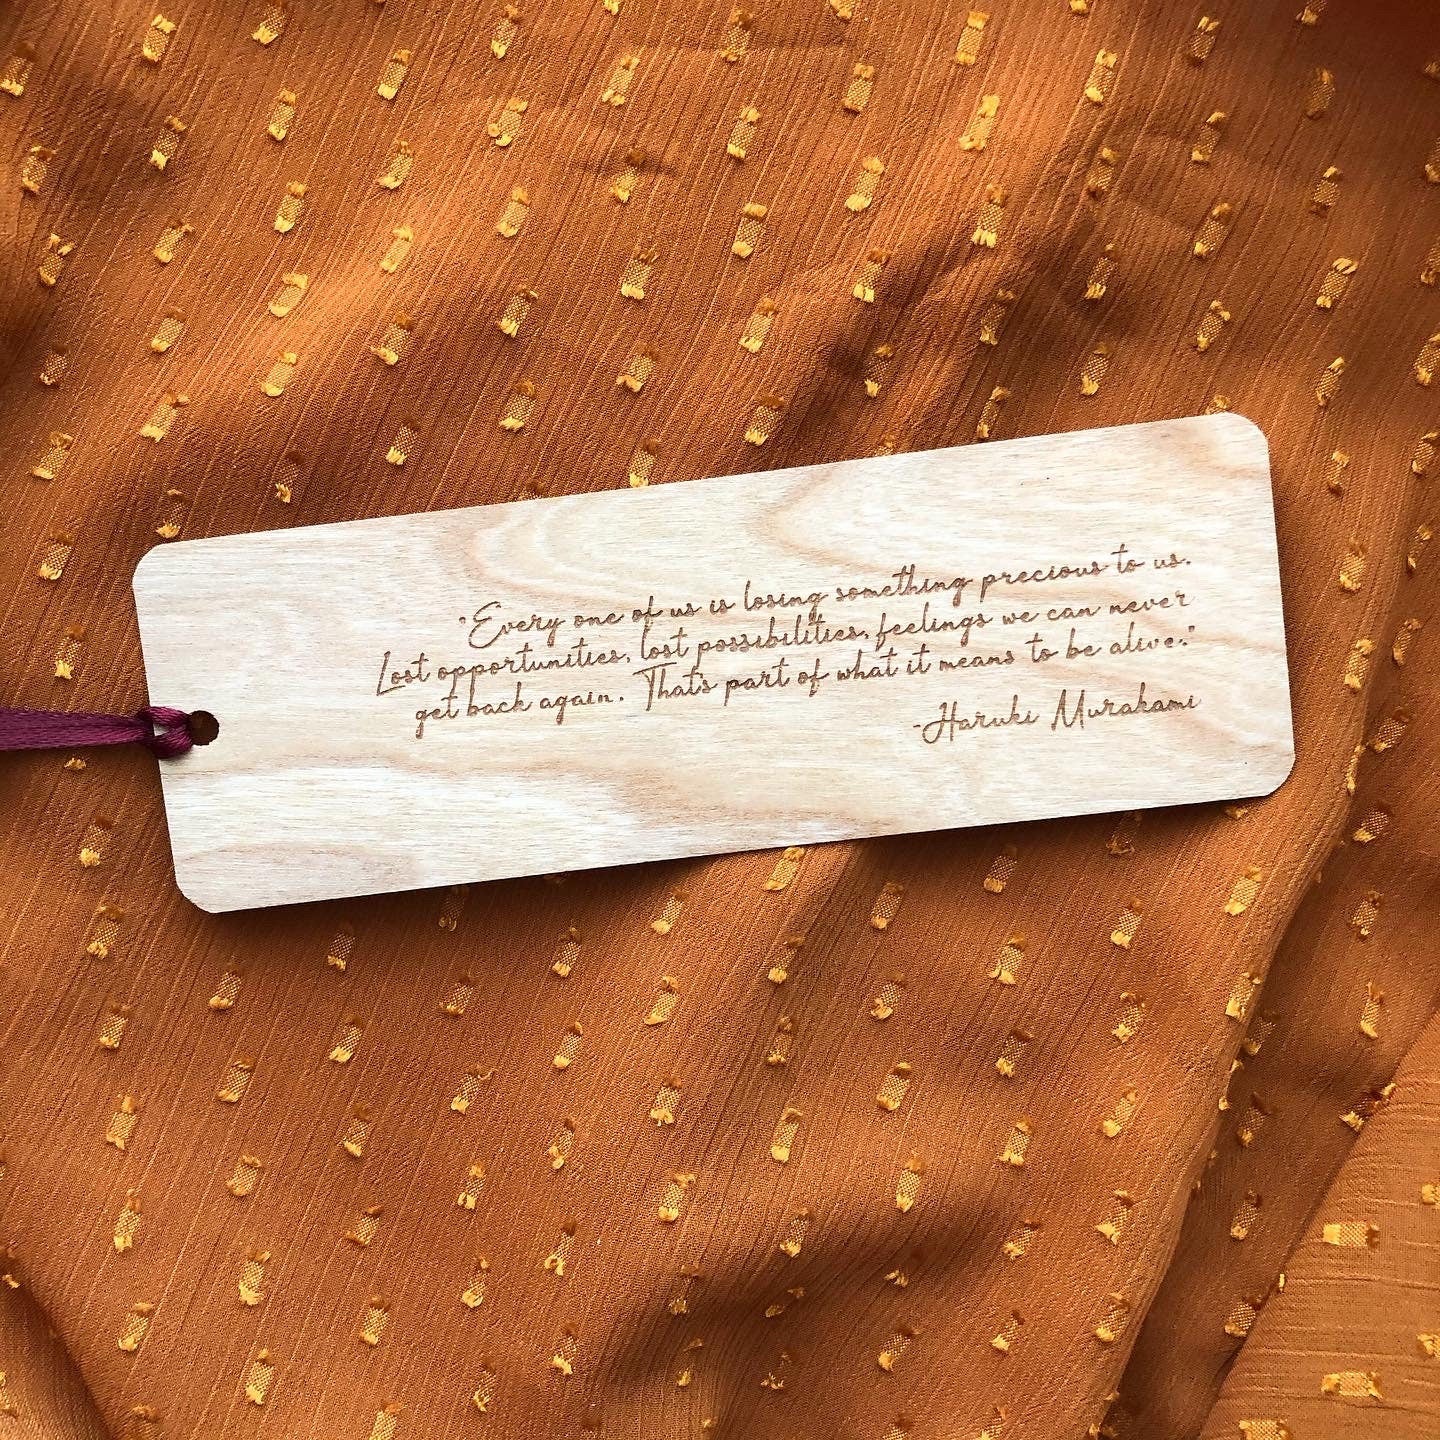 "Every one of us is losing something precious to us.
Lost opportunities, lost possibilities, feelings we can never
get back again. That's part of what it means to be alive."
-Haruki Murakami